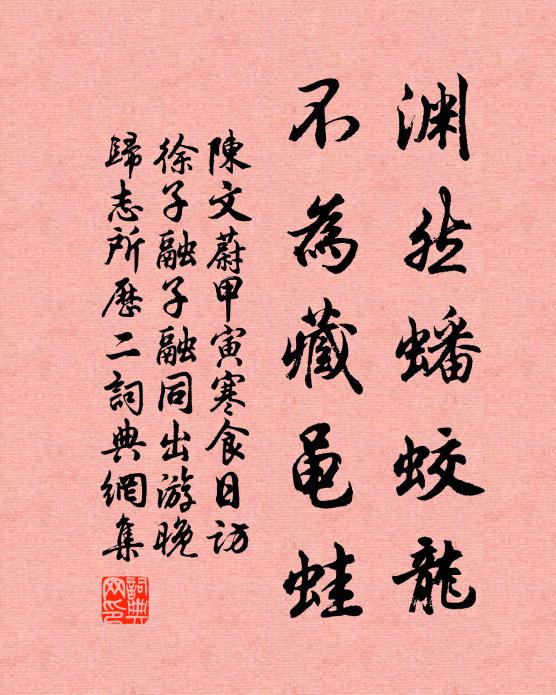 渊然蟠蛟龍
不為藏黽蛙
陳文蔚甲寅寒食日訪
徐子融子融同出游晚
歸志所歷二詞典網集
詞典網印